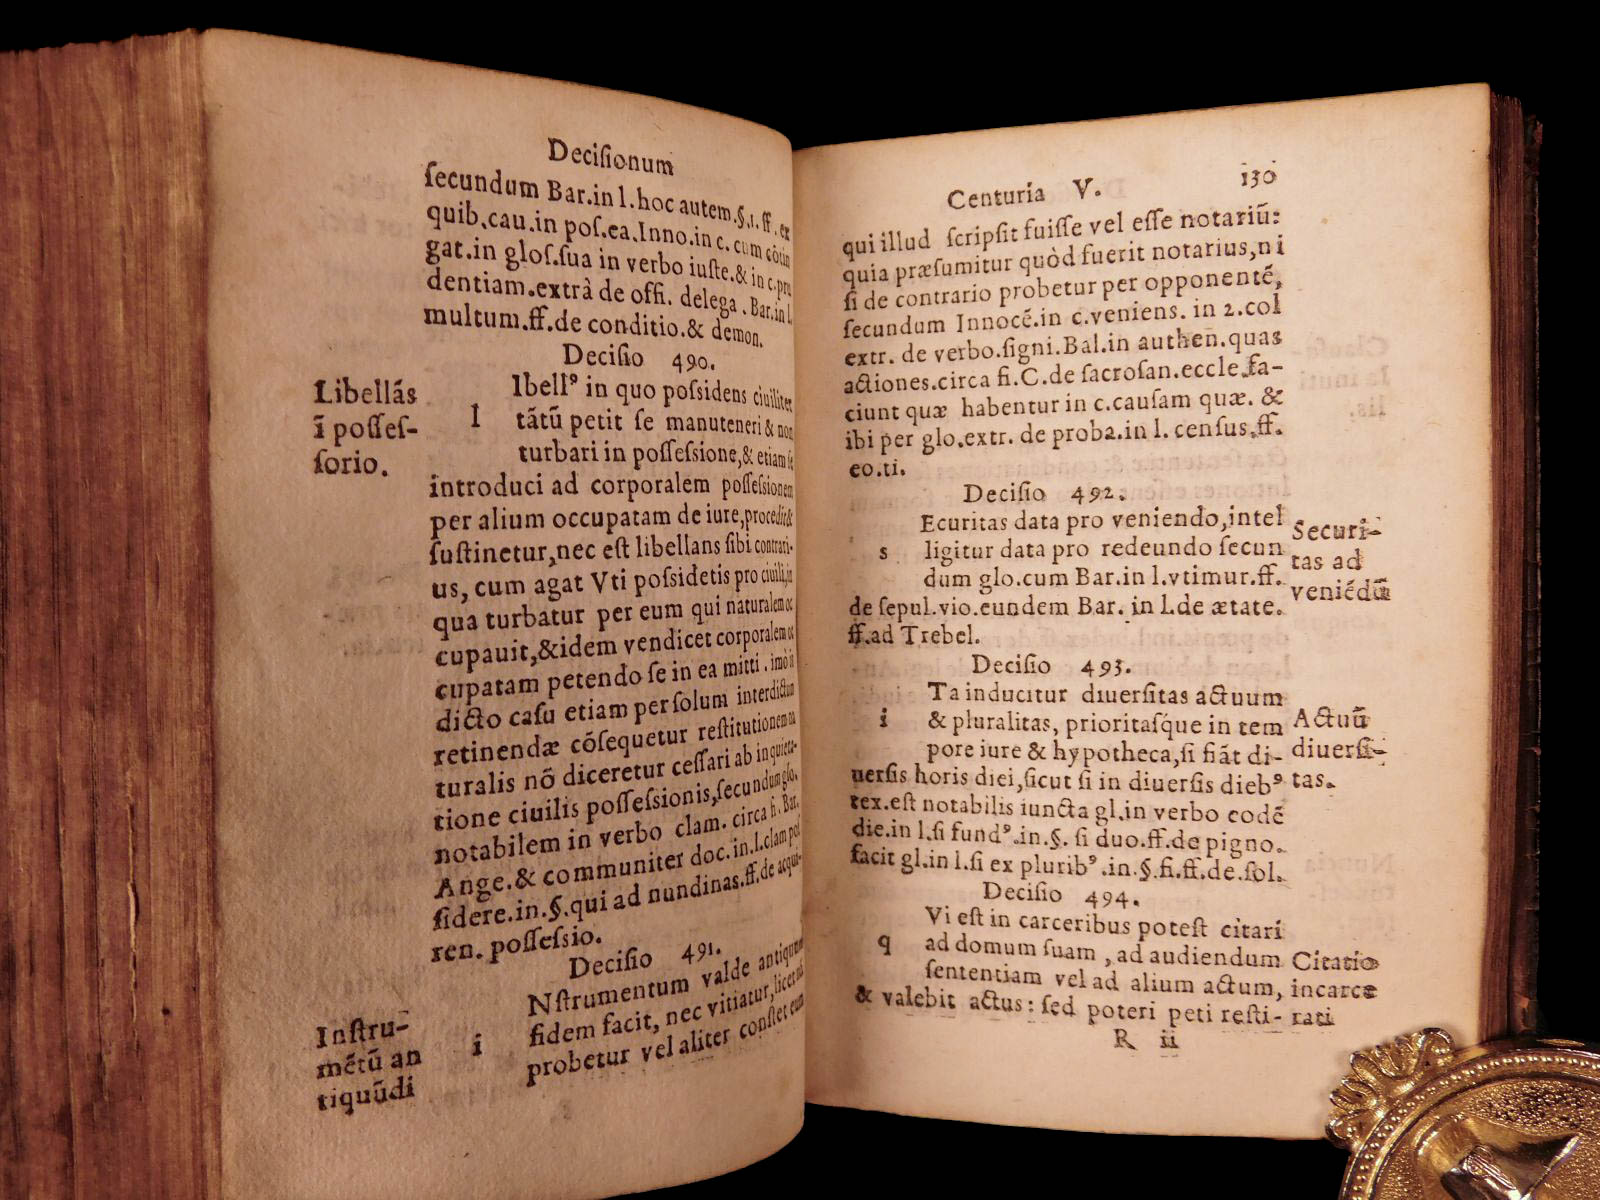 Deciſionum
ſecundum Bar.in l.hoc autem.§.1.ff.ex
quib.cau.in poſ.ea.Inno.in c. cum cõtin
gat.in gloſ.ſua in verbo iuſte.& in c.pru
dentiam.extrà de offi. delega. Bar.in l.
multum.ff.de conditio.& demon.
Deciſio 490.
Libellãs
ĩ poſſeſ-
ſorio.
l
Ibellꝰ in quo poſsidens ciuiliter
tãtũ petit ſe manuteneri & non
turbari in poſſeſsione,& etiam ſe
introduci ad corporalem poſſeſsionem
per alium occupatam de iure,procedit&
ſuſtinetur,nec eſt libellans ſibi contrari-
us, cum agat Vti poſsidetis pro ciuili,in
qua turbatur per eum qui naturalem oc
cupauit,&idem vendicet corporalem oc
cupatam petendo ſe in ea mitti. imò in
dicto caſu etiam per ſolum interdictum
retinendæ cõſequetur reſtitutionem
turalis nõ diceretur ceſſari ab inquieta-
tione ciuilis poſſeſsionis,ſecundum glo.
notabilem in verbo clam. circa fi. Bar.
Ange.& communiter doc.in.l.clam poſ
ſidere.in.§.qui ad nundinas.ff.de acqui-
ren. poſſeſsio.
Deciſio 491.
Inſtru-
mẽtũ an
tiquũdi
i
Nſtrumentum valde antiquum
fidem facit, nec vitiatur,licet nõ
probetur vel aliter conſtet eum
Centuria V. 130
qui illud ſcripſit fuiſſe vel eſſe notariũ:
quia præſumitur quòd fuerit notarius,ni
ſi de contrario probetur per opponentẽ,
ſecundum Innocẽ.in c.veniens. in 2.col
extr. de verbo.ſigni.Bal.in authen.quas
actiones.circa fi.C.de ſacroſan.eccle.fa-
ciunt quæ habentur in c.cauſam quæ. &
ibi per glo.extr. de proba.in l. cenſus.ff.
eo.ti.
Deciſio 492.
s
Ecuritas data pro veniendo,intel
ligitur data pro redeundo ſecun
dum glo.cum Bar.in l.vtimur.ff.
de ſepul.vio.eundem Bar. in l.de ætate.
ff.ad Trebel.
Securi-
tas ad
veniẽdũ
Deciſio 493.
i
Ta inducitur diuerſitas actuum
& pluralitas, prioritaſq́ue in tem
pore iure & hypotheca,ſi fiãt di-
uerſis horis diei,ſicut ſi in diuerſis diebꝰ
tex.eſt notabilis iuncta gl.in verbo eodẽ
die.in l.ſi fundꝰ.in.§. ſi duo.ff.de pigno.
facit gl.in l.ſi ex pluribꝰ.in.§.fi.ff.de.ſol.
Actuũ
diuerſi-
tas.
Deciſio 494.
q
Vi eſt in carceribus poteſt citari
ad domum ſuam, ad audiendum
ſententiam vel ad alium actum,
& valebit actus: ſed poteri peti reſti-
Citatio
incarce
rati
R ii